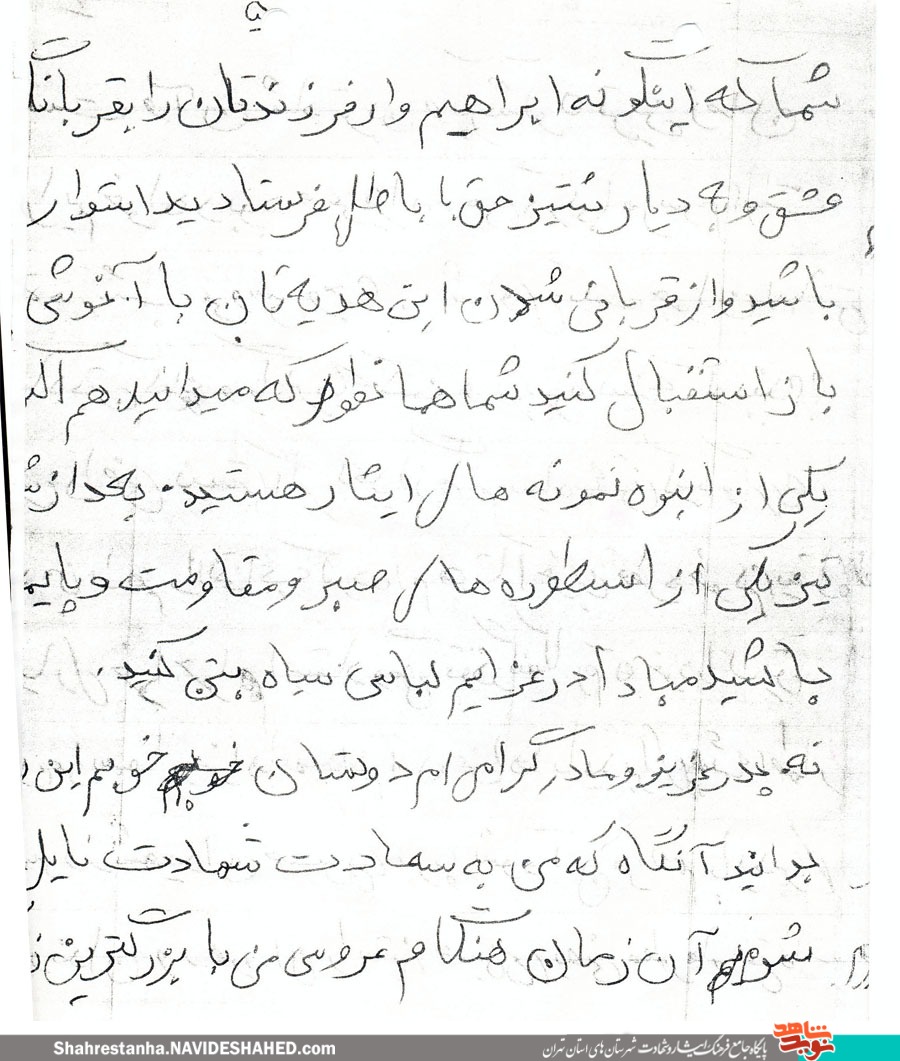 شما که اینگونه ابراهیم وار فرزندتان را بقربانگا
عشق و به دیار ستیز حق با باطل فرستادید استوار
باشید و از قربانی شدن این هدیه تان با آغوشی
باز استقبال کنید شما همانطور که میدانید هم اکـ
یکی از انبوه نمونه های ایثار هستید. بعد از شـ
نیز یکی از اسطوره های صبر و مقاومت و پایمـ
باشید مبادا در عزایم لباس سیاه بتن کنید.
نه. پدر عزیز و مادر گرامی ام دوستان خوبم این
بدانید آنگاه که من به سعادت شهادت نایل
شوم آن زمان هنگام عروسی من با بزرگترین
Shahrestanha.NAVIDESHAHED.com
پایگاه جامع فرهنگ ایثار و شهادت شهرستان های استان تهران
نوید شاهد